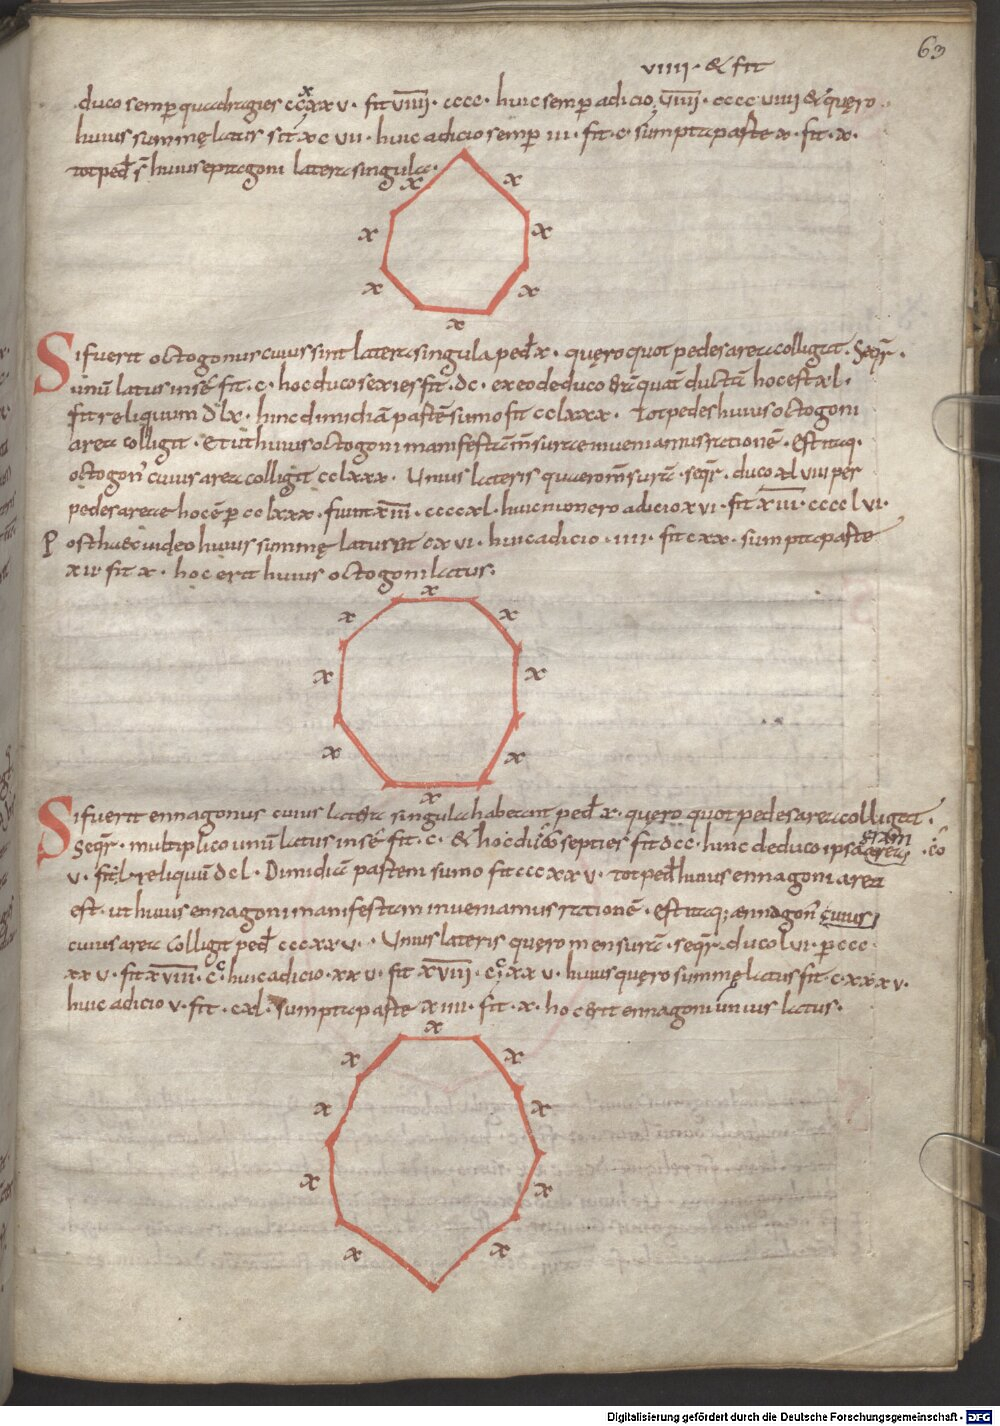 63
viiii · & fit
duco semp quadragies ccxxv · fit viiii · cccc · huic semp adicio viiii · cccc viiii & quęro
huius summę latus fit xc vii · huic adicio semp iii · fit · c · sumpta parte x · fit · x ·
tot ped s huius eptagoni latera singula ·
x
x
x
x
x
x
x
Si fuerit octogonus cuius sint latera singula ped x · quęro quot pedes area colligat · Seqr ·
unū latus in sé fit · c · hoc duco sexies fit · dc · ex eo deduco quā ductā hoc est xl ·
fit reliquum dlx · hinc dimidiā partē sumo fit cclxxx · Tot pedes huius octogoni
area colligit · Et ut huius octogoni manifestā msurae inveniamus rationē · Est itaq ·
octogon cuius area colligit cclxxx · Unius lateris quaero msurā · seqr · duco xl viii per
pedes areae hoc ē p cclxxx · fiunt xiii · ccccxl · huic numero adicio xvi · fit xiii · cccc lvi ·
Post haec video huius summę latus cxvi · huic adicio · iiii · fit cxx · sumpta parte
xii fit x · hoc erit huius octogoni latus ·
x
x
x
x
x
x
x
x
Si fuerit ennagonus cuius latera singula habeant ped x · quęro quot pedes area colligat ·
Seqr · multiplico unū latus in sé fit · c · & hoc duco septies fit dcc · hinc deduco ipsā
v · fit l reliquū dcl · Dimidiā partem sumo fit cccxxv · tot ped huius ennagoni area
est · ut huius ennagoni manifestam inveniamus rationē · est itaq; ennagon cuius
cuius area colligit ped cccxxv · Unius lateris quęro mensurā · seqr · duco lvi · p ccc ·
xxv · fit xviii · cc · huic adicio · xxv · fit xviii · cc xxv · huius quęro summę latus fit · cxxxv ·
huic adicio v · fit · cxl · sumpta parte xiiii · fit · x · hoc erit ennagoni unius latus ·
x
x
x
x
x
x
x
x
x
Digitalisierung gefördert durch die Deutsche Forschungsgemeinschaft - DFG